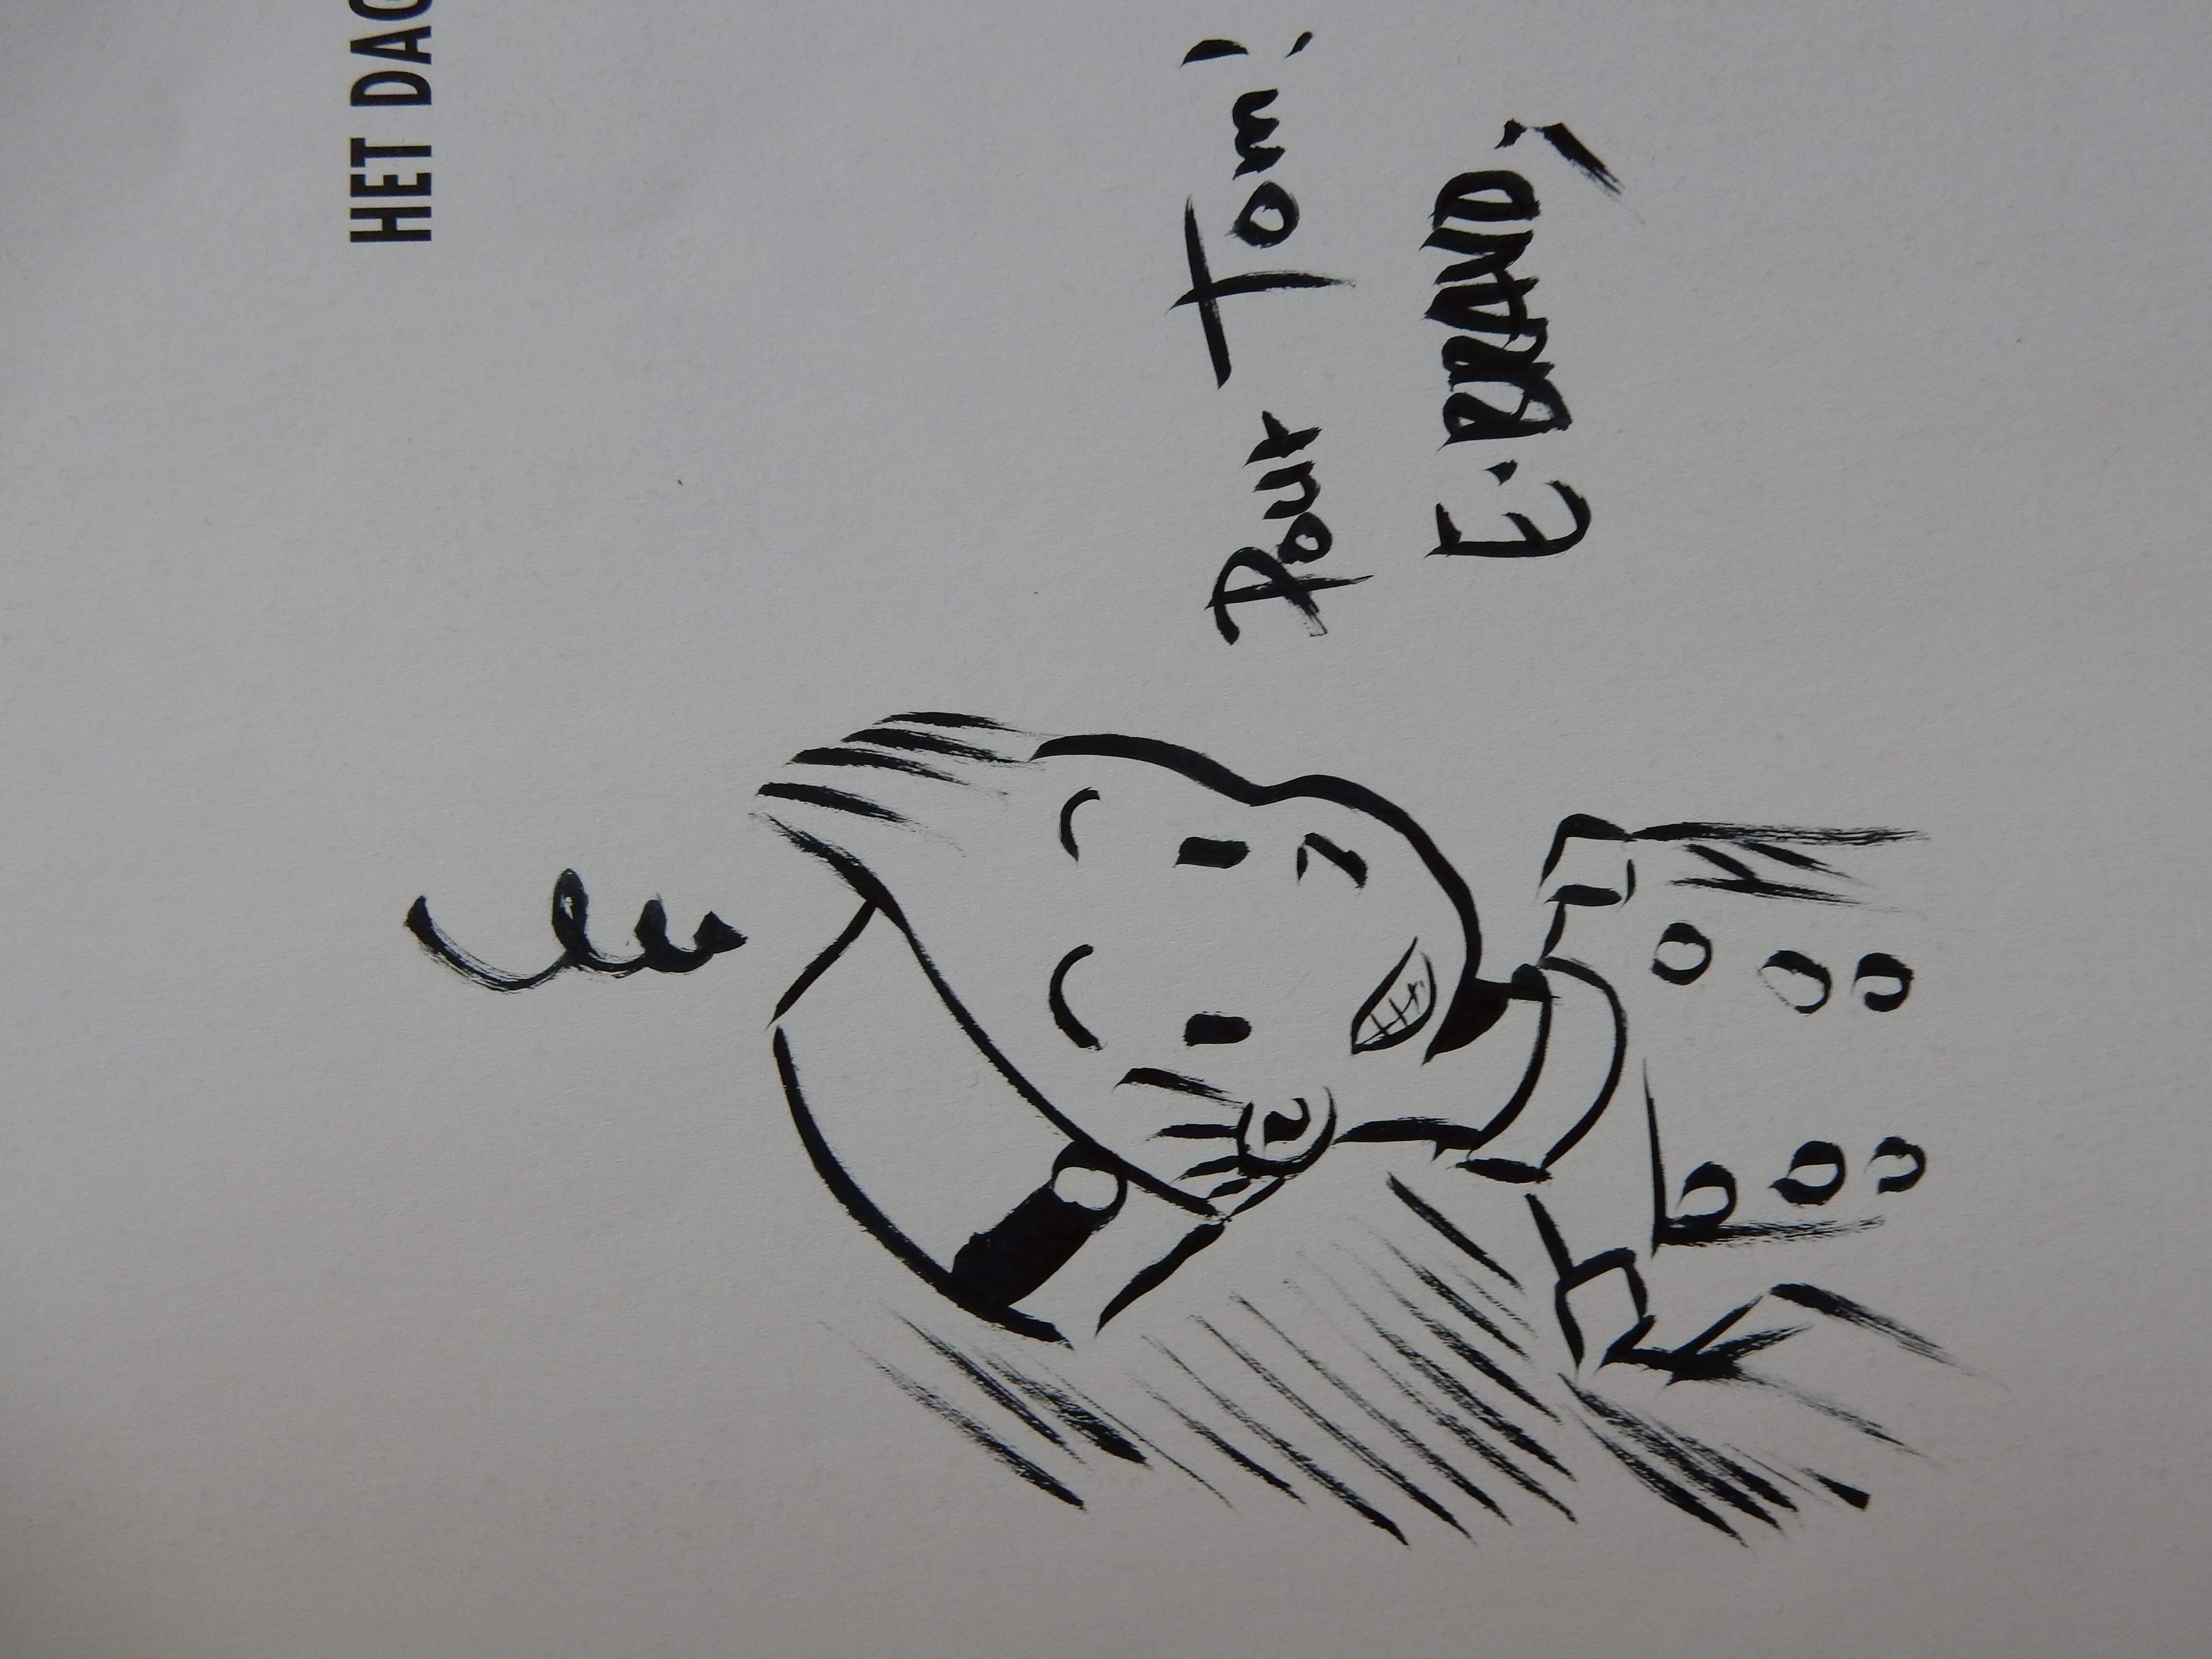 HET DAG
Pour Tom!
E. BRAVO,